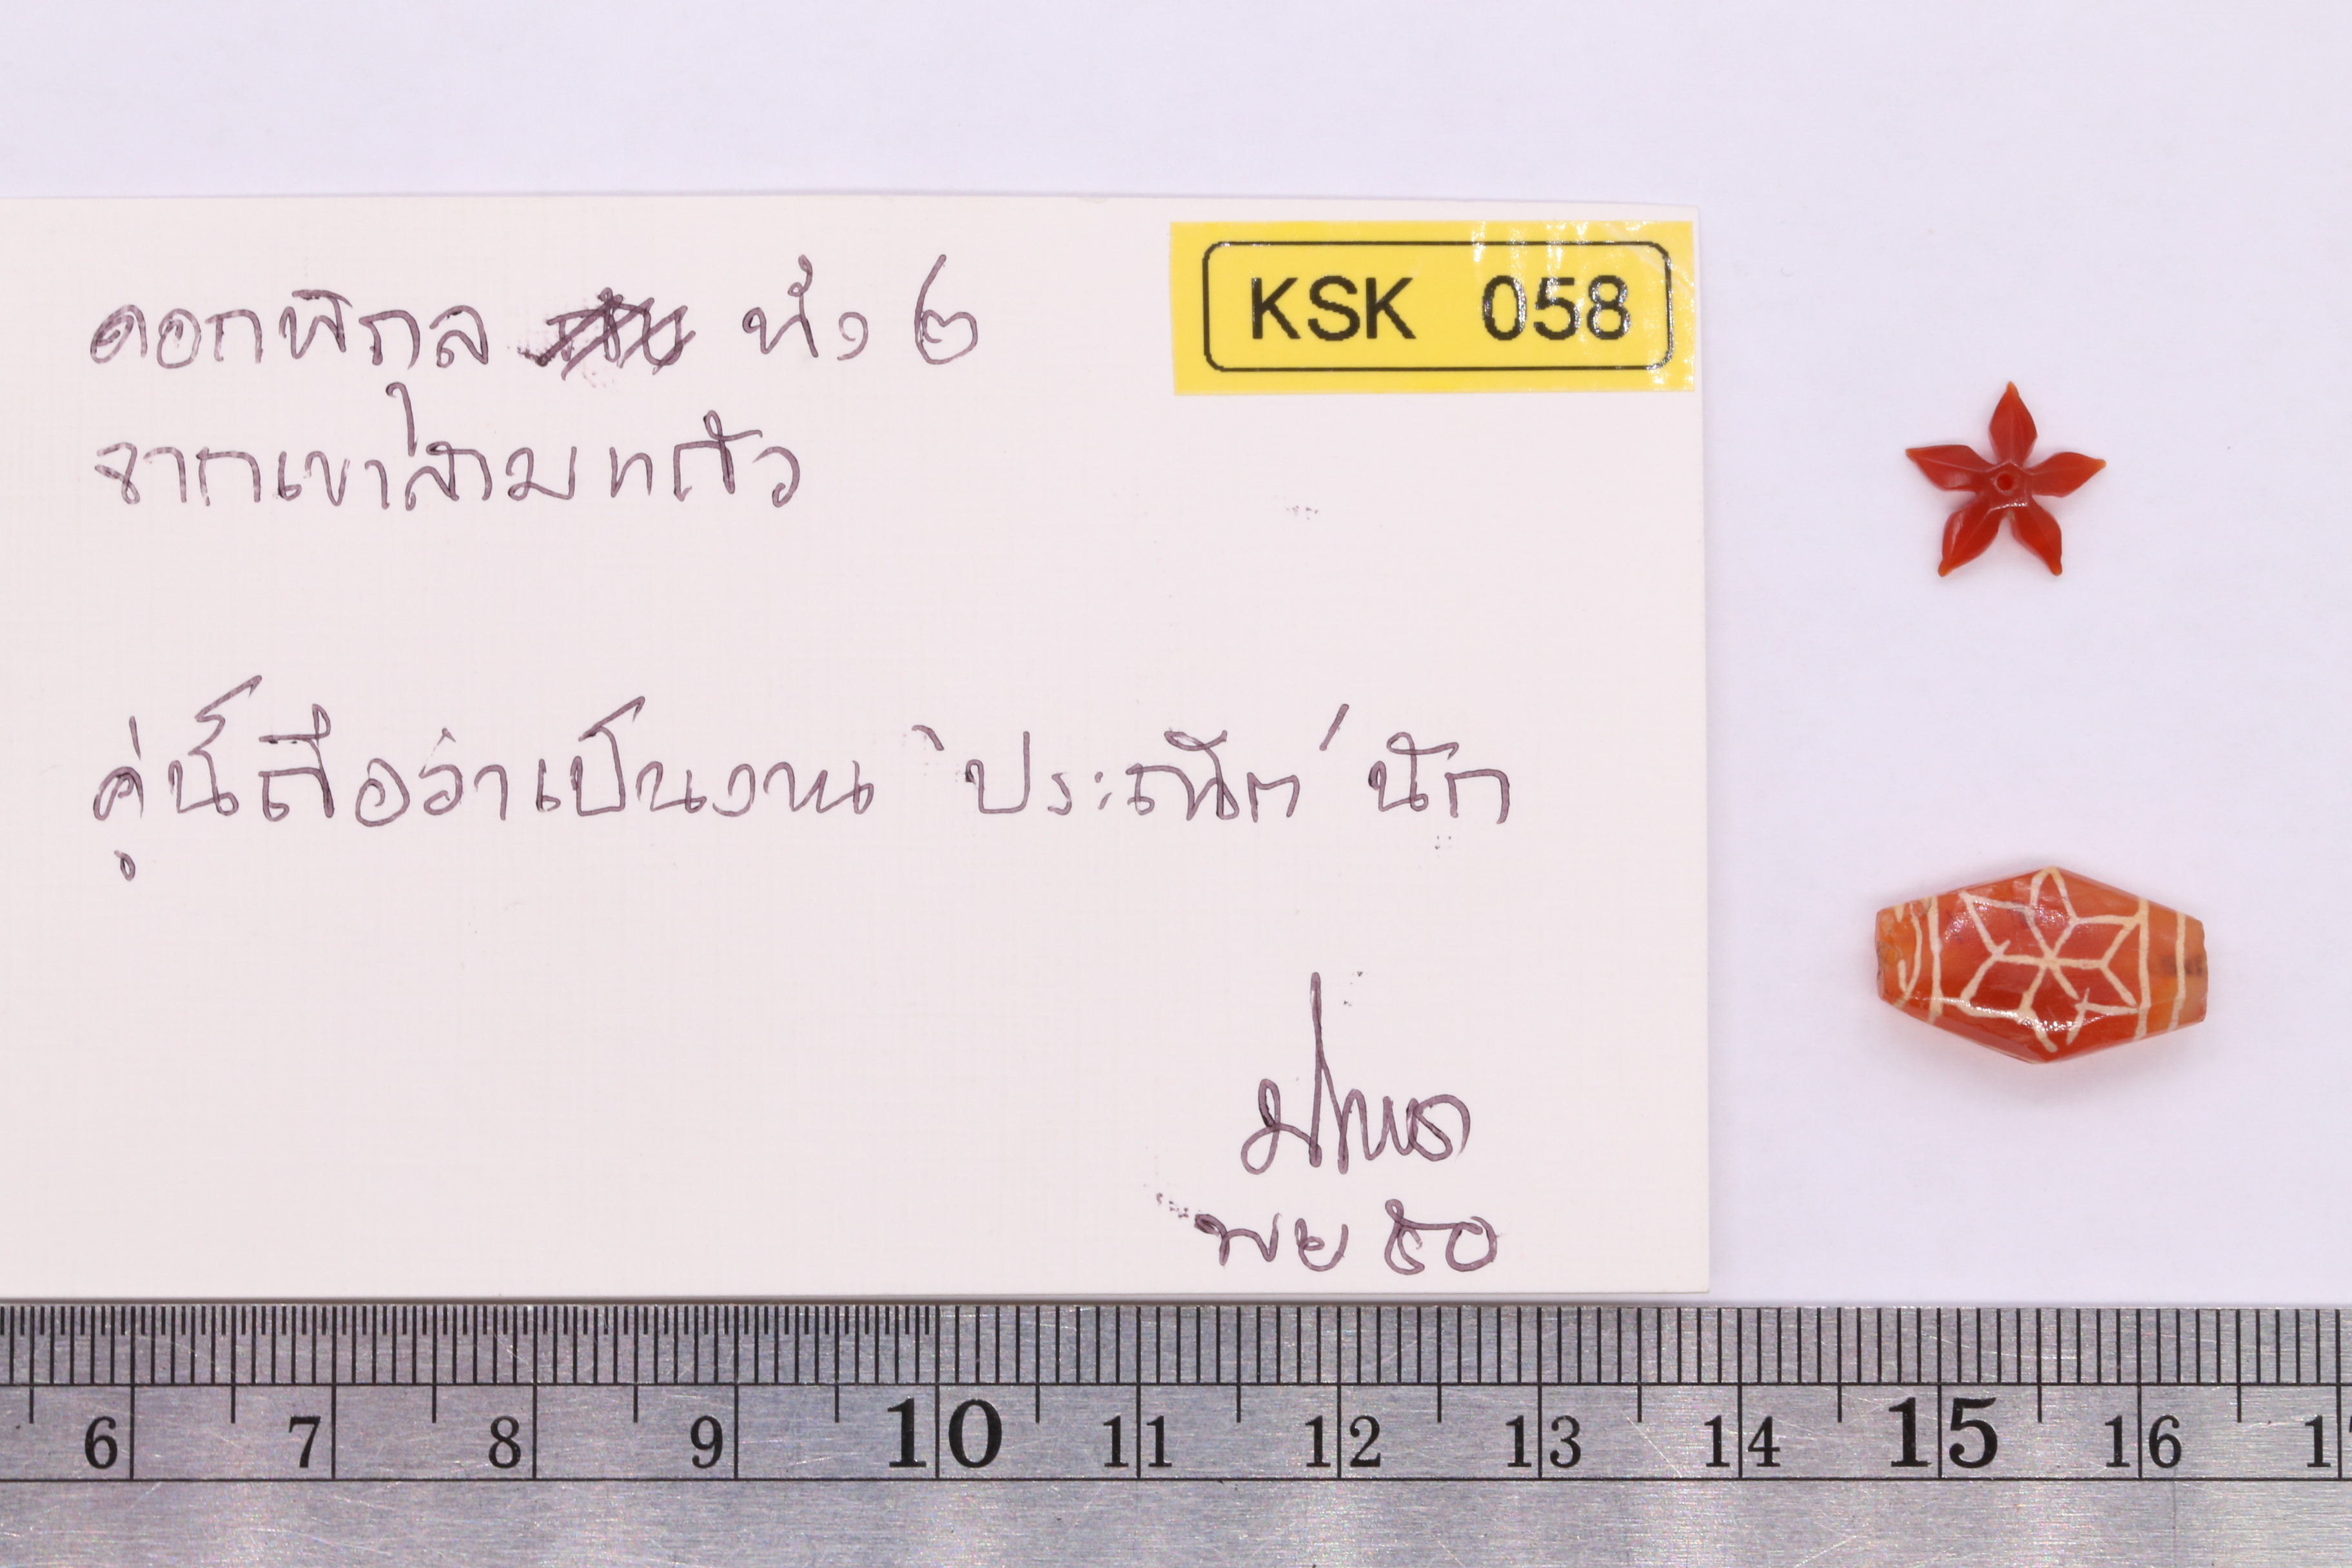 ดอกพิกุล ทั้ง ๒
KSK 058
จากเขาสามแก้ว
คู่นี้ถือว่าเป็นงาน "ประณีต" นัก
พย ๕๐
6 7 8 9 10 11 12 13 14 15 16